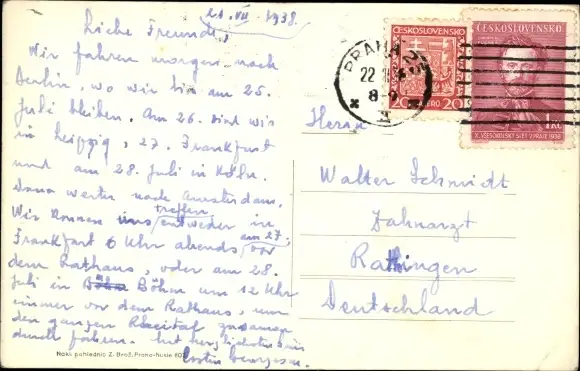 21. VII. 1938.
Liebe Freunde,
Wir fahren morgen nach
Berlin, wo wir bis am 25.
Juli bleiben. Am 26. sind wir
in Leipzig, 27. Frankfurt
und am 28. Juli in Köln.
Dann weiter nach Amsterdam.
Wir können uns treffen entweder in
Frankfurt 6 Uhr abends am 27. vor
dem Rathaus, oder am 28.
Juli in Böhm um 12 Uhr
immer vor dem Rathaus, um
den ganzen
durch fahren. Mit herzlichsten
Naklí pohlednic Z. Brož, Praha-Nusle
ČESKOSLOVENSKO
20 20
ČESKOSLOVENSKO
1 Kč
X. VŠESOKOLSKÝ SLET V PRAZE 1938
PRAHA 25
22
8-9
Herrn
Walter Schmidt
Zahnarzt
Ratingen
Deutschland